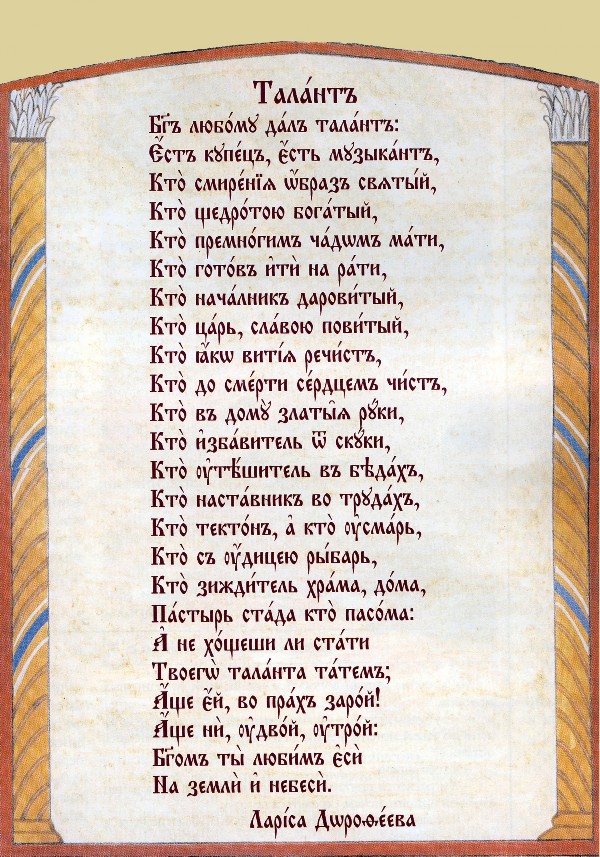 Тала́нтъ
Бг҃ъ любо́му да́лъ тала́нтъ:
Є҆́сть купе́цъ, є҆́сть музыка́нтъ,
Кто̀ смире́нїѧ ѡ҆́бразъ свѧты́й,
Кто̀ щедро́тою бога́тый,
Кто̀ премно́гимъ ча́дѡмъ ма́ти,
Кто̀ гото́въ и҆тѝ на ра́ти,
Кто̀ нача́лникъ дарови́тый,
Кто̀ ца́рь, сла́вою пови́тый,
Кто̀ ꙗ҆́кѡ вити́ѧ речи́стъ,
Кто̀ до сме́рти се́рдцемъ чи́стъ,
Кто̀ въ дому̀ златы̑ѧ рꙋ́ки,
Кто̀ и҆зба́витель ѿ ску́ки,
Кто̀ ᲂу҆тѣ́шитель въ бѣда́хъ,
Кто̀ наста́вникъ во труда́хъ,
Кто̀ текто́нъ, а҆ кто̀ ᲂу҆сма́рь,
Кто̀ съ ᲂу҆́дицею ры́барь,
Кто̀ зижди́тель хра́ма, до́ма,
Па́стырь ста́да кто̀ пасо́ма:
А҆ не хо́щеши ли ста́ти
Твоегѡ̀ тала́нта та́темъ;
А҆́ще є҆́й, во пра́хъ заро́й!
А҆́ще нѝ, ᲂу҆дво́й, ᲂу҆тро́й:
Бг҃омъ ты̀ люби́мъ є҆сѝ
На землѝ и҆ небесѝ.
Лари́са Дѡроѳе́ева